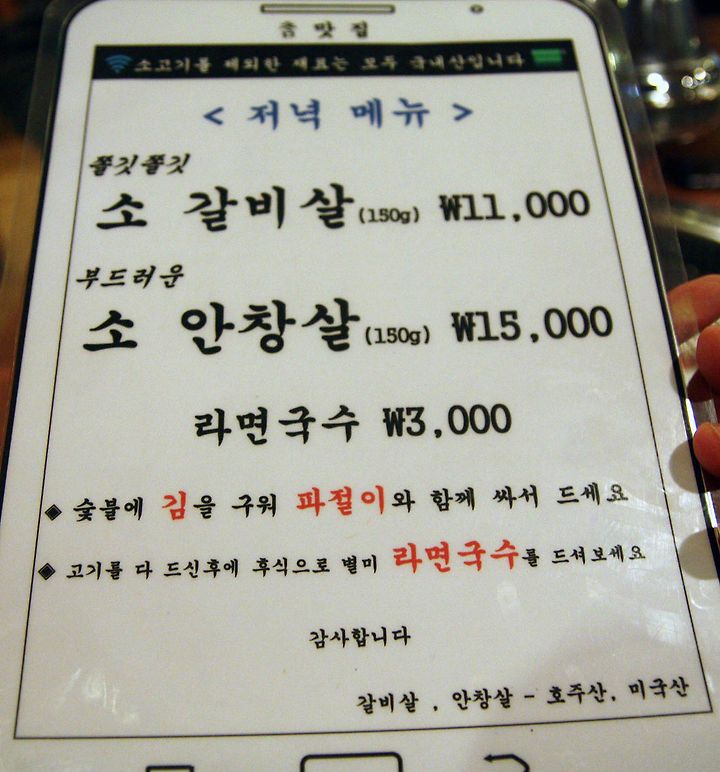 참맛집
소고기를 제외한 재료는 모두 국내산입니다
< 저녁 메뉴 >
쫄깃쫄깃
소 갈비살(150g) ₩11,000
부드러운
소 안창살(150g) ₩15,000
라면국수 ₩3,000
◈ 숯불에 김을 구워 파절이와 함께 싸서 드세요
◈ 고기를 다 드신후에 후식으로 별미 라면국수를 드셔보세요
감사합니다
갈비살 , 안창살 - 호주산, 미국산